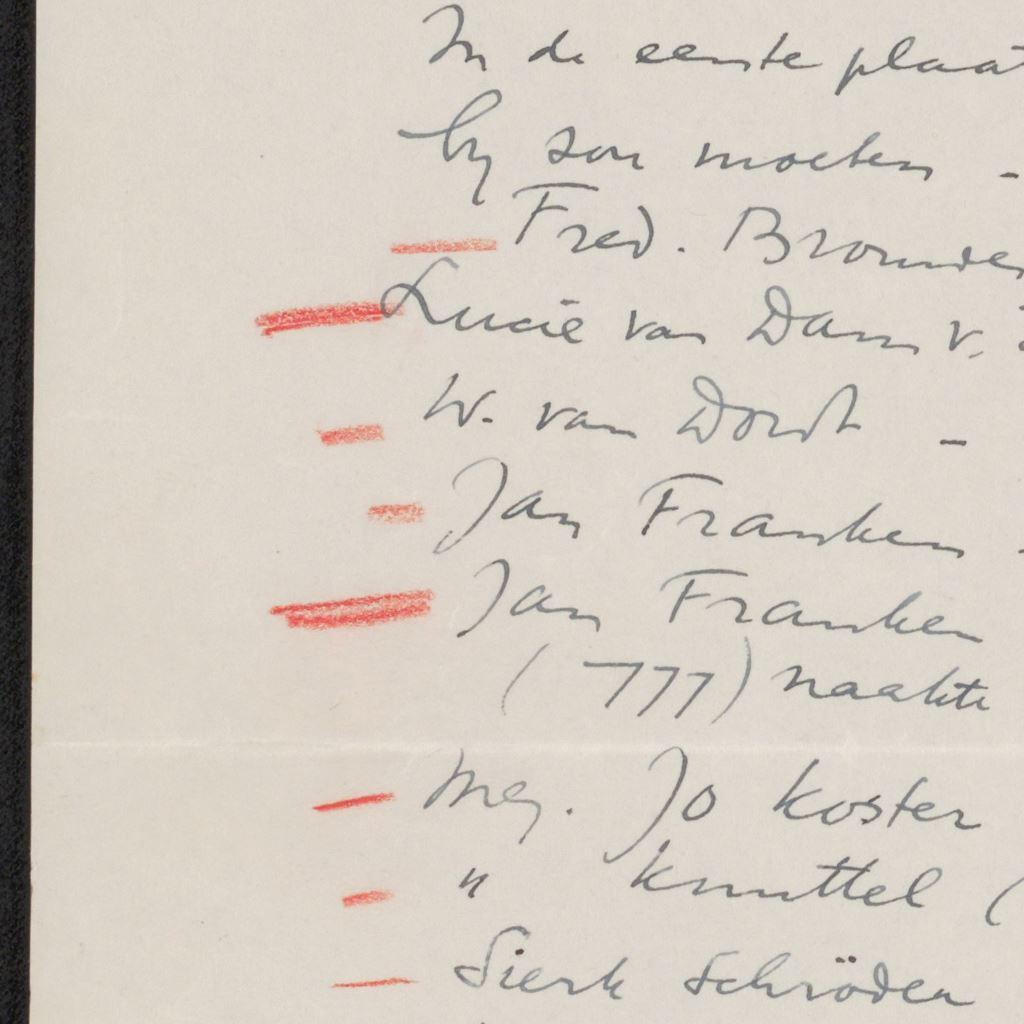 In de eerste plaat
by zou moeten -
Fred. Brouwer
Lucie van Dam v.
W. van Dordt -
Jan Franken -
Jan Franken
(777) naakte
Mej. Jo Koster
" Knuttel (
Sierk Schröder